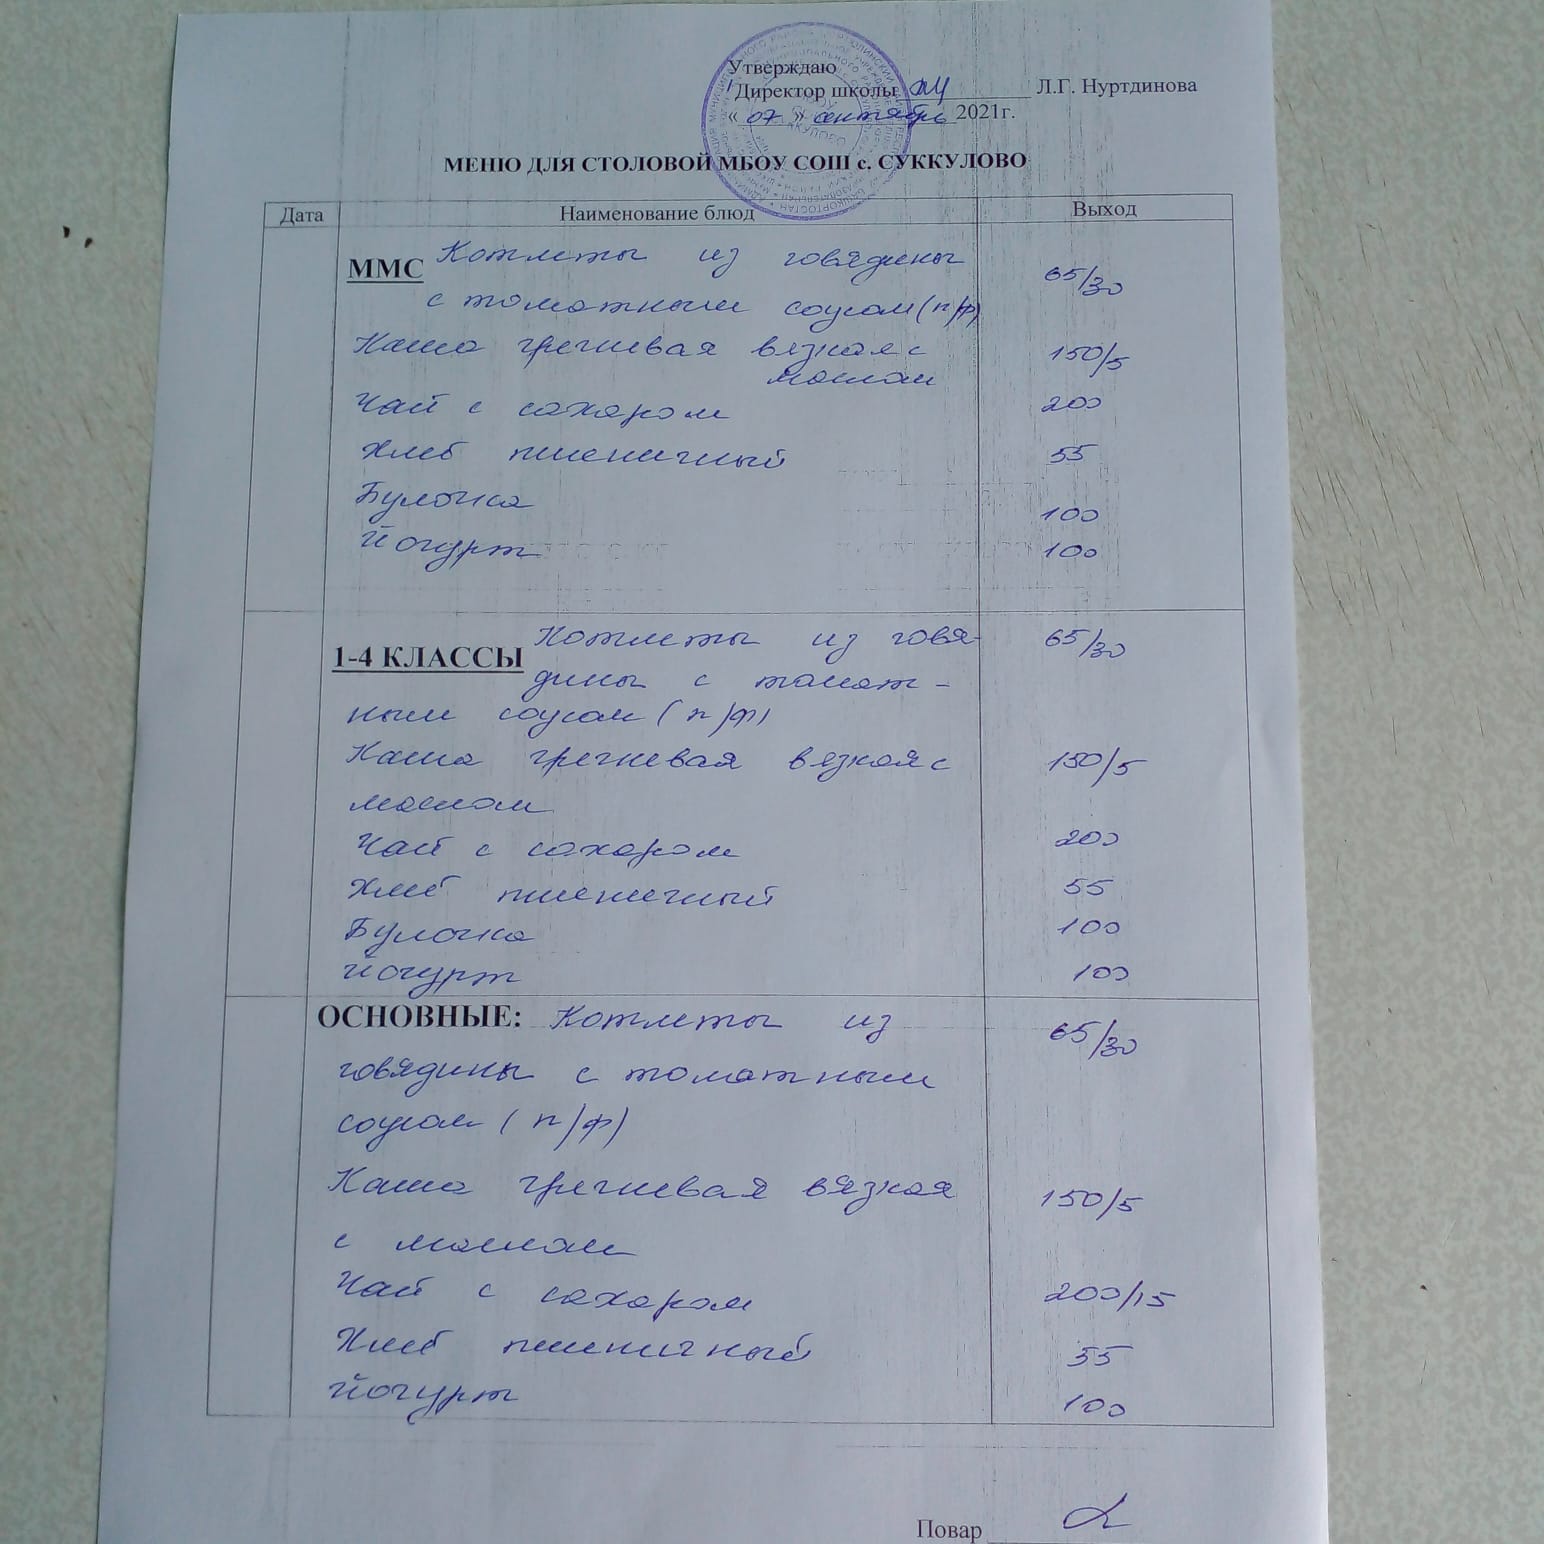 Утверждаю
Директор школы Л.Г. Нуртдинова
« 07 » сентябрь 2021г.
МЕНЮ ДЛЯ СТОЛОВОЙ МБОУ СОШ с. СУККУЛОВО
Дата Наименование блюд Выход
ММС Котлеты из говядины 65/30
с томатным соусом (п/ф)
Каша гречневая вязкая с 150/5
маслом
Чай с сахаром 200
Хлеб пшеничный 55
Булочка 100
Йогурт 100
1-4 КЛАССЫ Котлеты из говя- 65/30
дины с томат-
ным соусом (п/ф)
Каша гречневая вязкая с 150/5
маслом
Чай с сахаром 200
Хлеб пшеничный 55
Булочка 100
Йогурт 100
ОСНОВНЫЕ: Котлеты из 65/30
говядины с томатным
соусом (п/ф)
Каша гречневая вязкая 150/5
с маслом
Чай с сахаром 200/15
Хлеб пшеничный 55
Йогурт 100
Повар